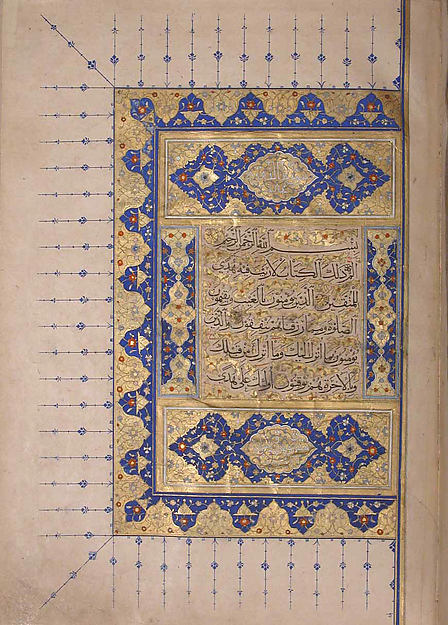 بسم الله الرحمن الرحيم
الم ذلك الكتاب لا ريب فيه هدى
للمتقين الذين يؤمنون بالغيب ويقيمون
الصلوة ومما رزقناهم ينفقون والذين
يؤمنون بما انزل اليك وما انزل من قبلك
وبالآخرة هم يوقنون اولئك على هدى